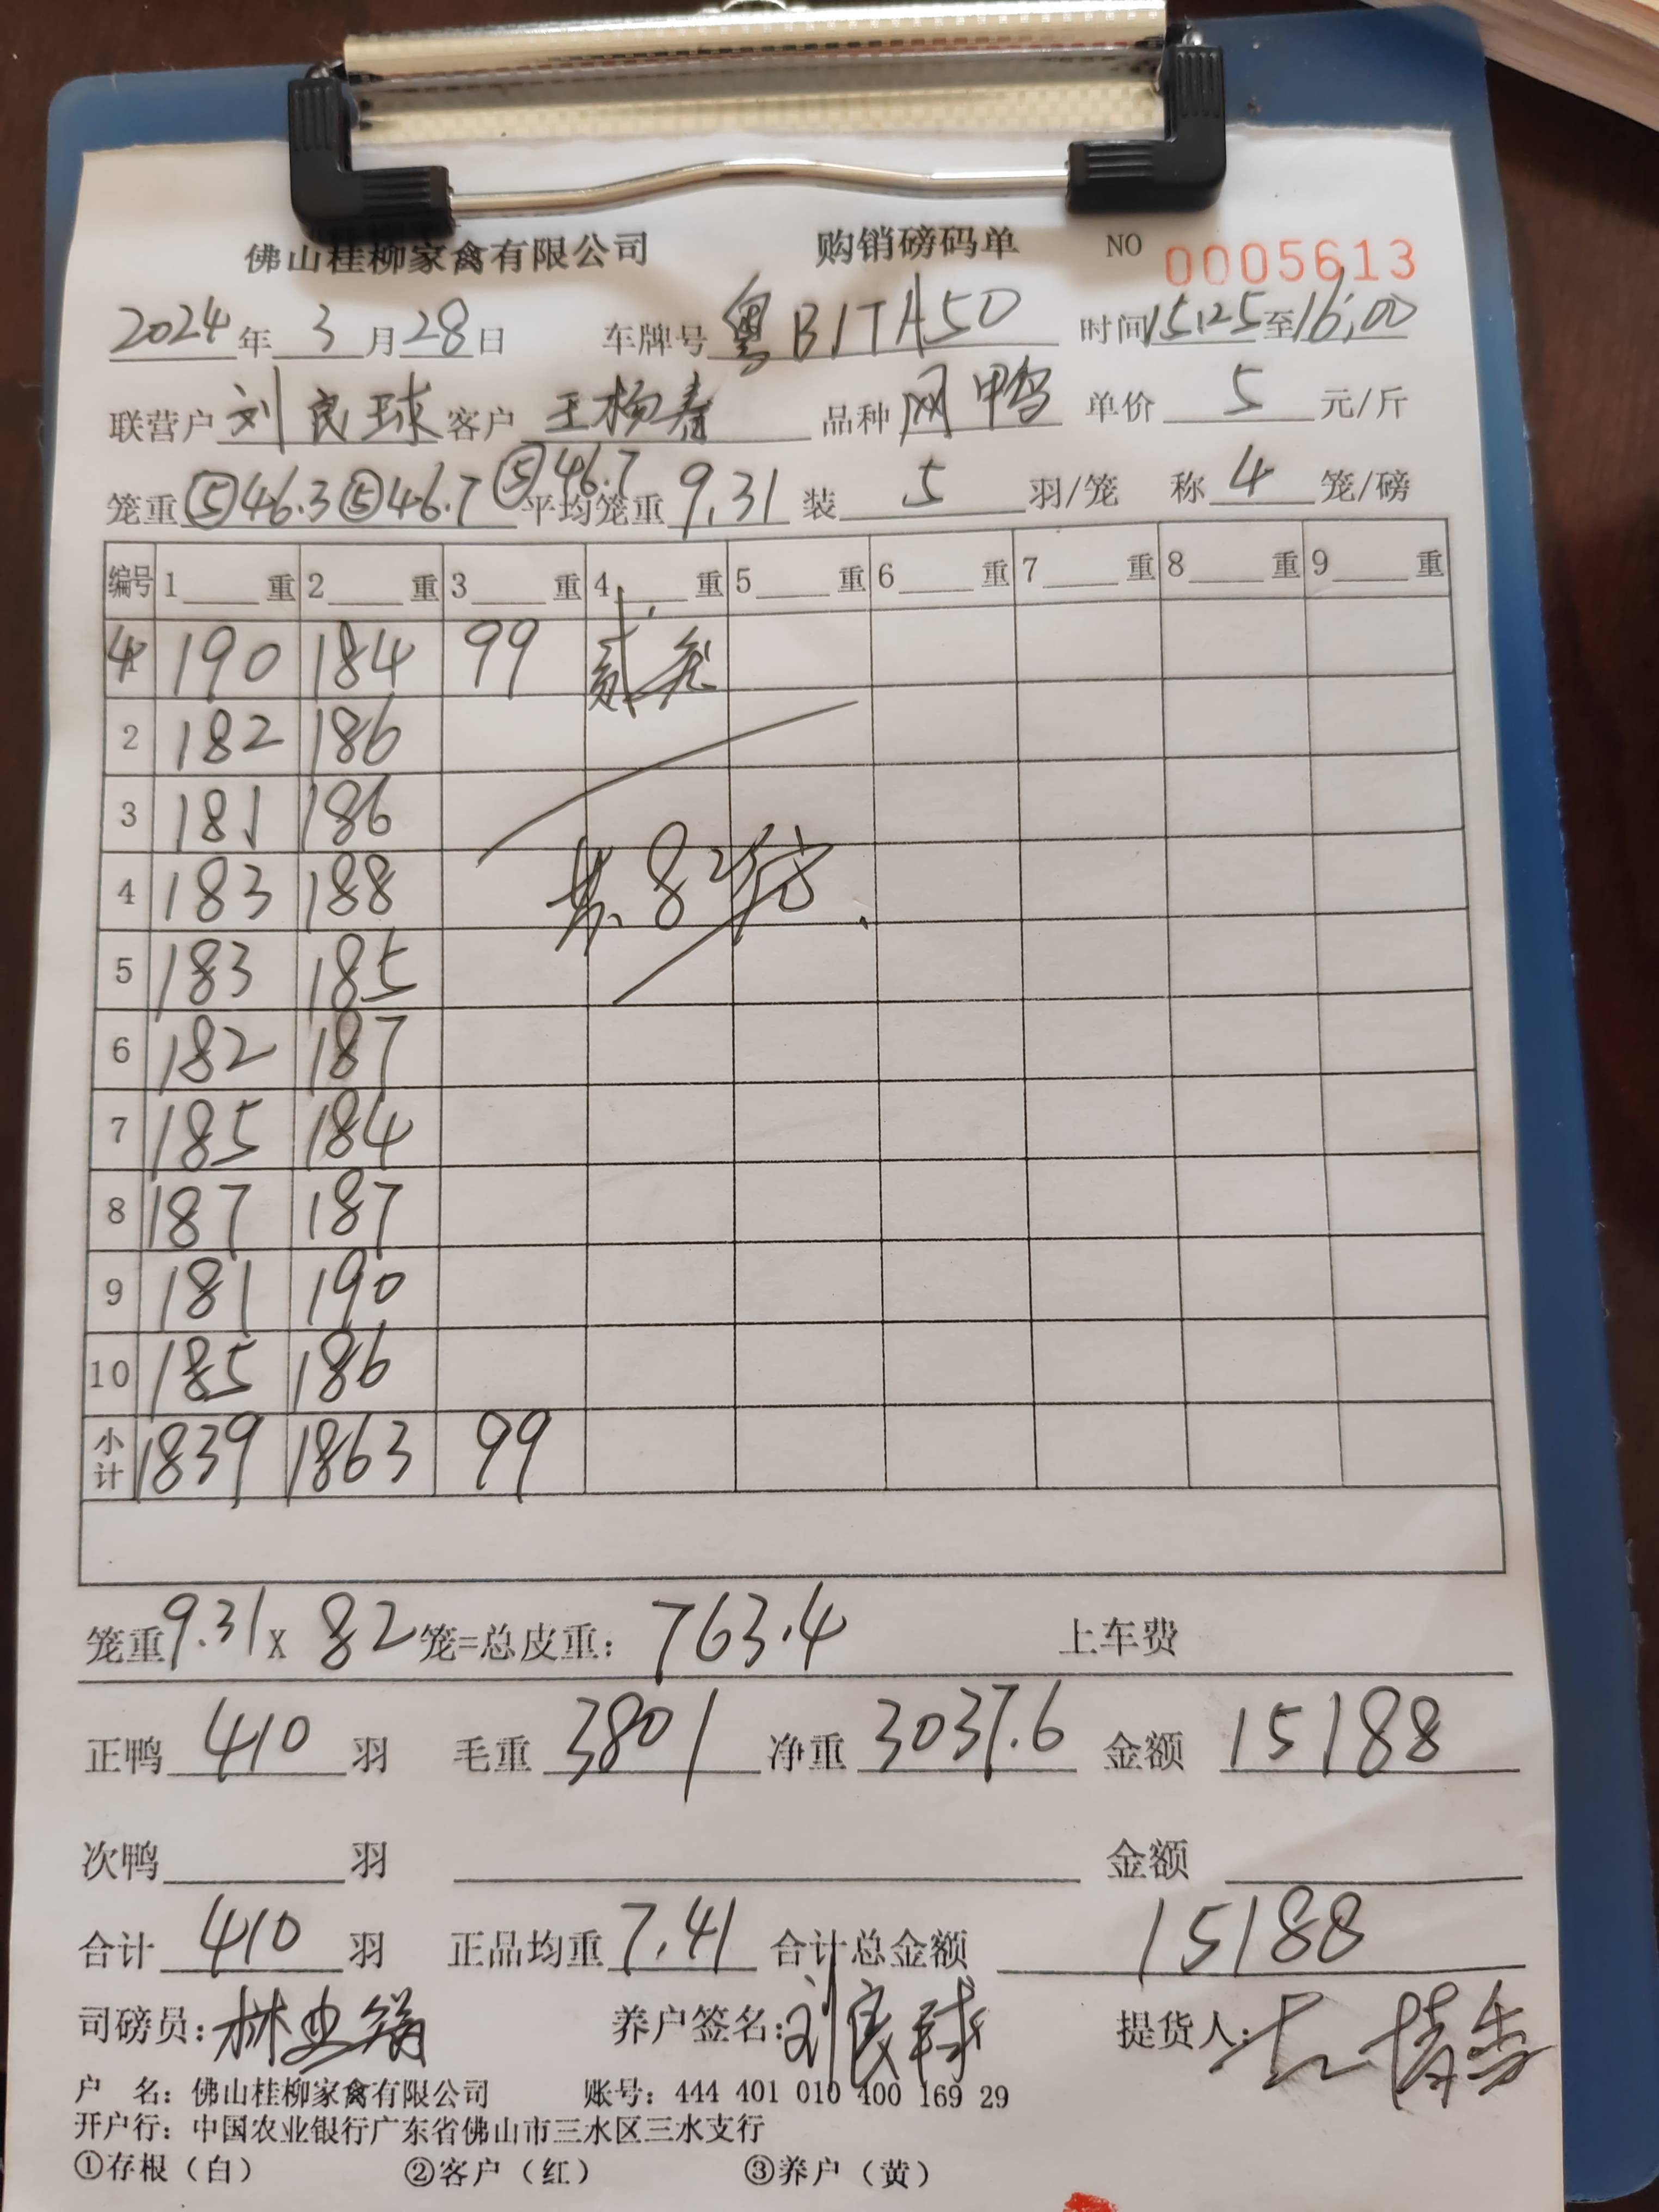 佛山桂柳家禽有限公司 购销磅码单 NO 0005613
2024年3月28日 车牌号 粤B1TA50 时间15:25至16:00
联营户 刘良球 客户 王杨春 品种 网鸭 单价 5 元/斤
笼重 ⑤46.3 ⑤46.7 ⑤46.7 平均笼重 9.31 装 5 羽/笼 称 4 笼/磅
编号 1 重 2 重 3 重 4 重 5 重 6 重 7 重 8 重 9 重
4 190 184 99 贰笼
2 182 186
3 181 186
4 183 188 共82笼
5 183 185
6 182 187
7 185 184
8 187 187
9 181 190
10 185 186
小计 1839 1863 99
笼重9.31X 82笼=总皮重: 763.4 上车费
正鸭 410 羽 毛重 3801 净重 3037.6 金额 15188
次鸭 羽 金额
合计 410 羽 正品均重 7.41 合计总金额 15188
司磅员: 养户签名: 刘良球 提货人:
户 名: 佛山桂柳家禽有限公司 账号: 444 401 010 400 169 29
开户行: 中国农业银行广东省佛山市三水区三水支行
①存根（白） ②客户（红） ③养户（黄）